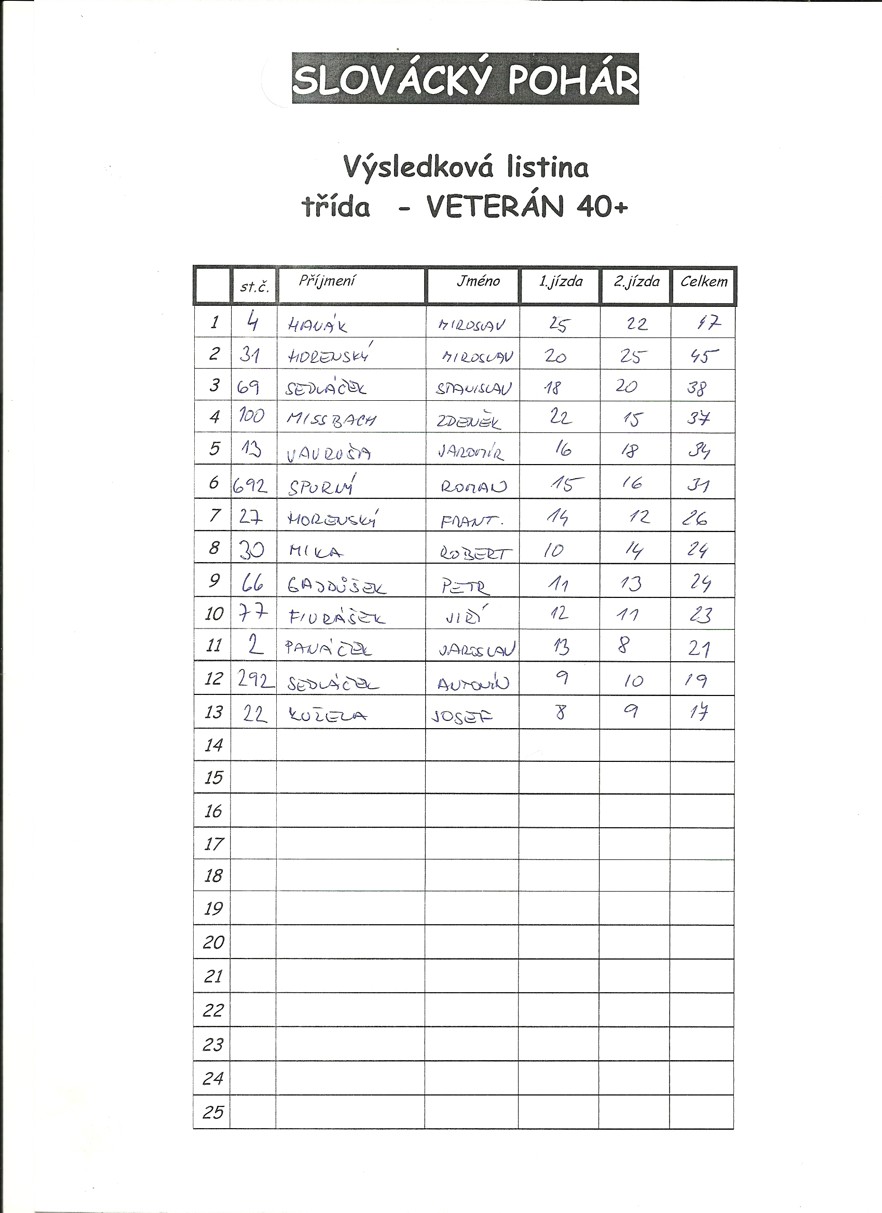 SLOVÁCKÝ POHÁR
Výsledková listina
třída - VETERÁN 40+
st.č. Příjmení Jméno 1.jízda 2.jízda Celkem
1 4 HANÁK MIROSLAV 25 22 47
2 31 HORENSKÝ MIROSLAV 20 25 45
3 69 SEDLÁČEK STANISLAV 18 20 38
4 100 MISSBACH ZDENĚK 22 15 37
5 13 VAVRUŠA JAROMÍR 16 18 34
6 692 SPURNÝ ROMAN 15 16 31
7 27 HORENSKÝ FRANT. 14 12 26
8 30 MIKA ROBERT 10 14 24
9 66 GAJDŮŠEK PETR 11 13 24
10 77 FIURÁŠEK JIŘÍ 12 11 23
11 2 PANÁČEK JAROSLAV 13 8 21
12 292 SEDLÁČEK ANTONÍN 9 10 19
13 22 KUŽELA JOSEF 8 9 17
14
15
16
17
18
19
20
21
22
23
24
25